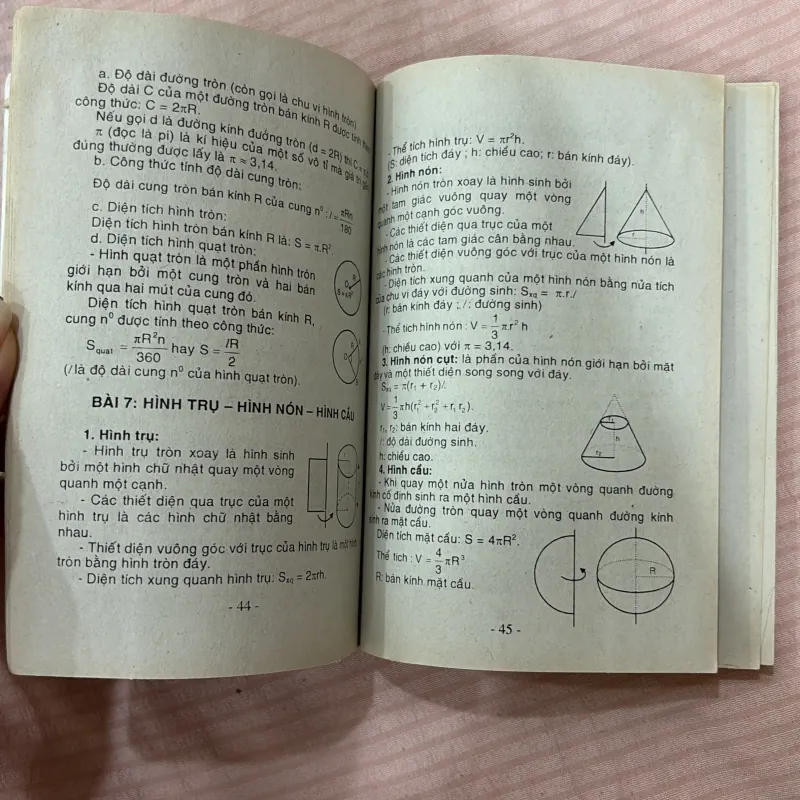 a. Độ dài đường tròn (còn gọi là chu vi hình tròn)
Độ dài C của một đường tròn bán kính R được tính theo
công thức: C = 2πR.
Nếu gọi d là đường kính đường tròn (d = 2R) thì C = πd
π (đọc là pi) là kí hiệu của một số vô tỉ mà giá trị gần
đúng thường được lấy là π ≈ 3,14.
b. Công thức tính độ dài cung tròn:
Độ dài cung tròn bán kính R của cung n⁰ : l = πRn/180
c. Diện tích hình tròn:
Diện tích hình tròn bán kính R là: S = π.R².
d. Diện tích hình quạt tròn:
- Hình quạt tròn là một phần hình tròn
giới hạn bởi một cung tròn và hai bán
kính qua hai mút của cung đó.
R
O
S = πR²
Diện tích hình quạt tròn bán kính R,
cung n⁰ được tính theo công thức:
S_quạt = πR²n/360 hay S = lR/2
(l là độ dài cung n⁰ của hình quạt tròn).
O
R
BÀI 7: HÌNH TRỤ – HÌNH NÓN – HÌNH CẦU
1. Hình trụ:
- Hình trụ tròn xoay là hình sinh
bởi một hình chữ nhật quay một vòng
quanh một cạnh.
- Các thiết diện qua trục của một
hình trụ là các hình chữ nhật bằng
nhau.
- Thiết diện vuông góc với trục của hình trụ là một hình
tròn bằng hình tròn đáy.
- Diện tích xung quanh hình trụ: Sxq = 2πrh.
- 44 -
- Thể tích hình trụ: V = πr²h.
(S: diện tích đáy ; h: chiều cao; r: bán kính đáy).
2. Hình nón:
- Hình nón tròn xoay là hình sinh bởi
một tam giác vuông quay một vòng
quanh một cạnh góc vuông.
- Các thiết diện qua trục của một
hình nón là các tam giác cân bằng nhau.
- Các thiết diện vuông góc với trục của một hình nón là
các hình tròn.
h
r
- Diện tích xung quanh của một hình nón bằng nửa tích
của chu vi đáy với đường sinh: Sxq = π.r.l
(r: bán kính đáy ; l: đường sinh)
- Thể tích hình nón : V = 1/3 π.r² h
(h: chiều cao) với π = 3,14.
3. Hình nón cụt: là phần của hình nón giới hạn bởi mặt
đáy và một thiết diện song song với đáy.
Sxq = π(r₁ + r₂)l.
V = 1/3 πh(r₁² + r₂² + r₁ r₂).
r₁, r₂: bán kính hai đáy.
l: độ dài đường sinh.
h: chiều cao.
r₁
h
r₂
4. Hình cầu:
- Khi quay một nửa hình tròn một vòng quanh đường
kính cố định sinh ra một hình cầu.
- Nửa đường tròn quay một vòng quanh đường kính
sinh ra mặt cầu.
Diện tích mặt cầu: S = 4πR².
Thể tích : V = 4/3 πR³
R: bán kính mặt cầu.
R
- 45 -